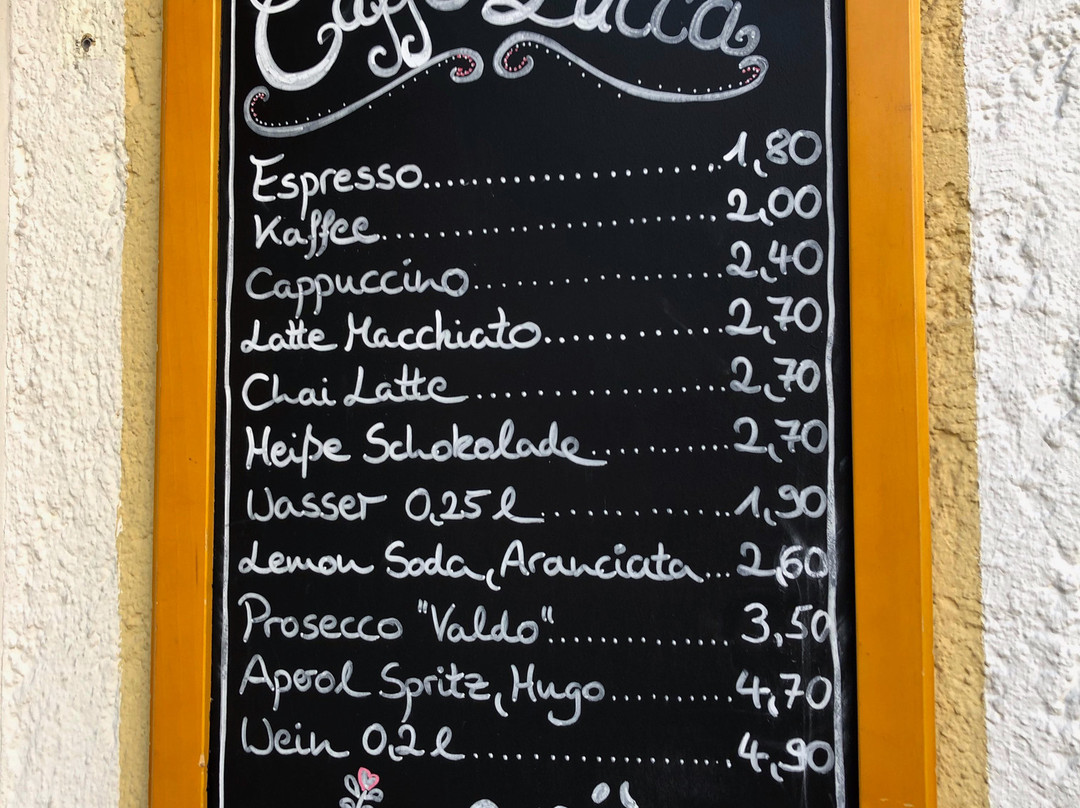 Caffè Lucca
Espresso.................... 1,80
Kaffee...................... 2,00
Cappuccino................. 2,40
Latte Macchiato............ 2,70
Chai Latte................. 2,70
Heiße Schokolade.......... 2,70
Wasser 0,25 l.............. 1,90
Lemon Soda, Aranciata... 2,60
Prosecco "Valdo"............ 3,50
Aperol Spritz, Hugo......... 4,70
Wein 0,2 l.................. 4,90